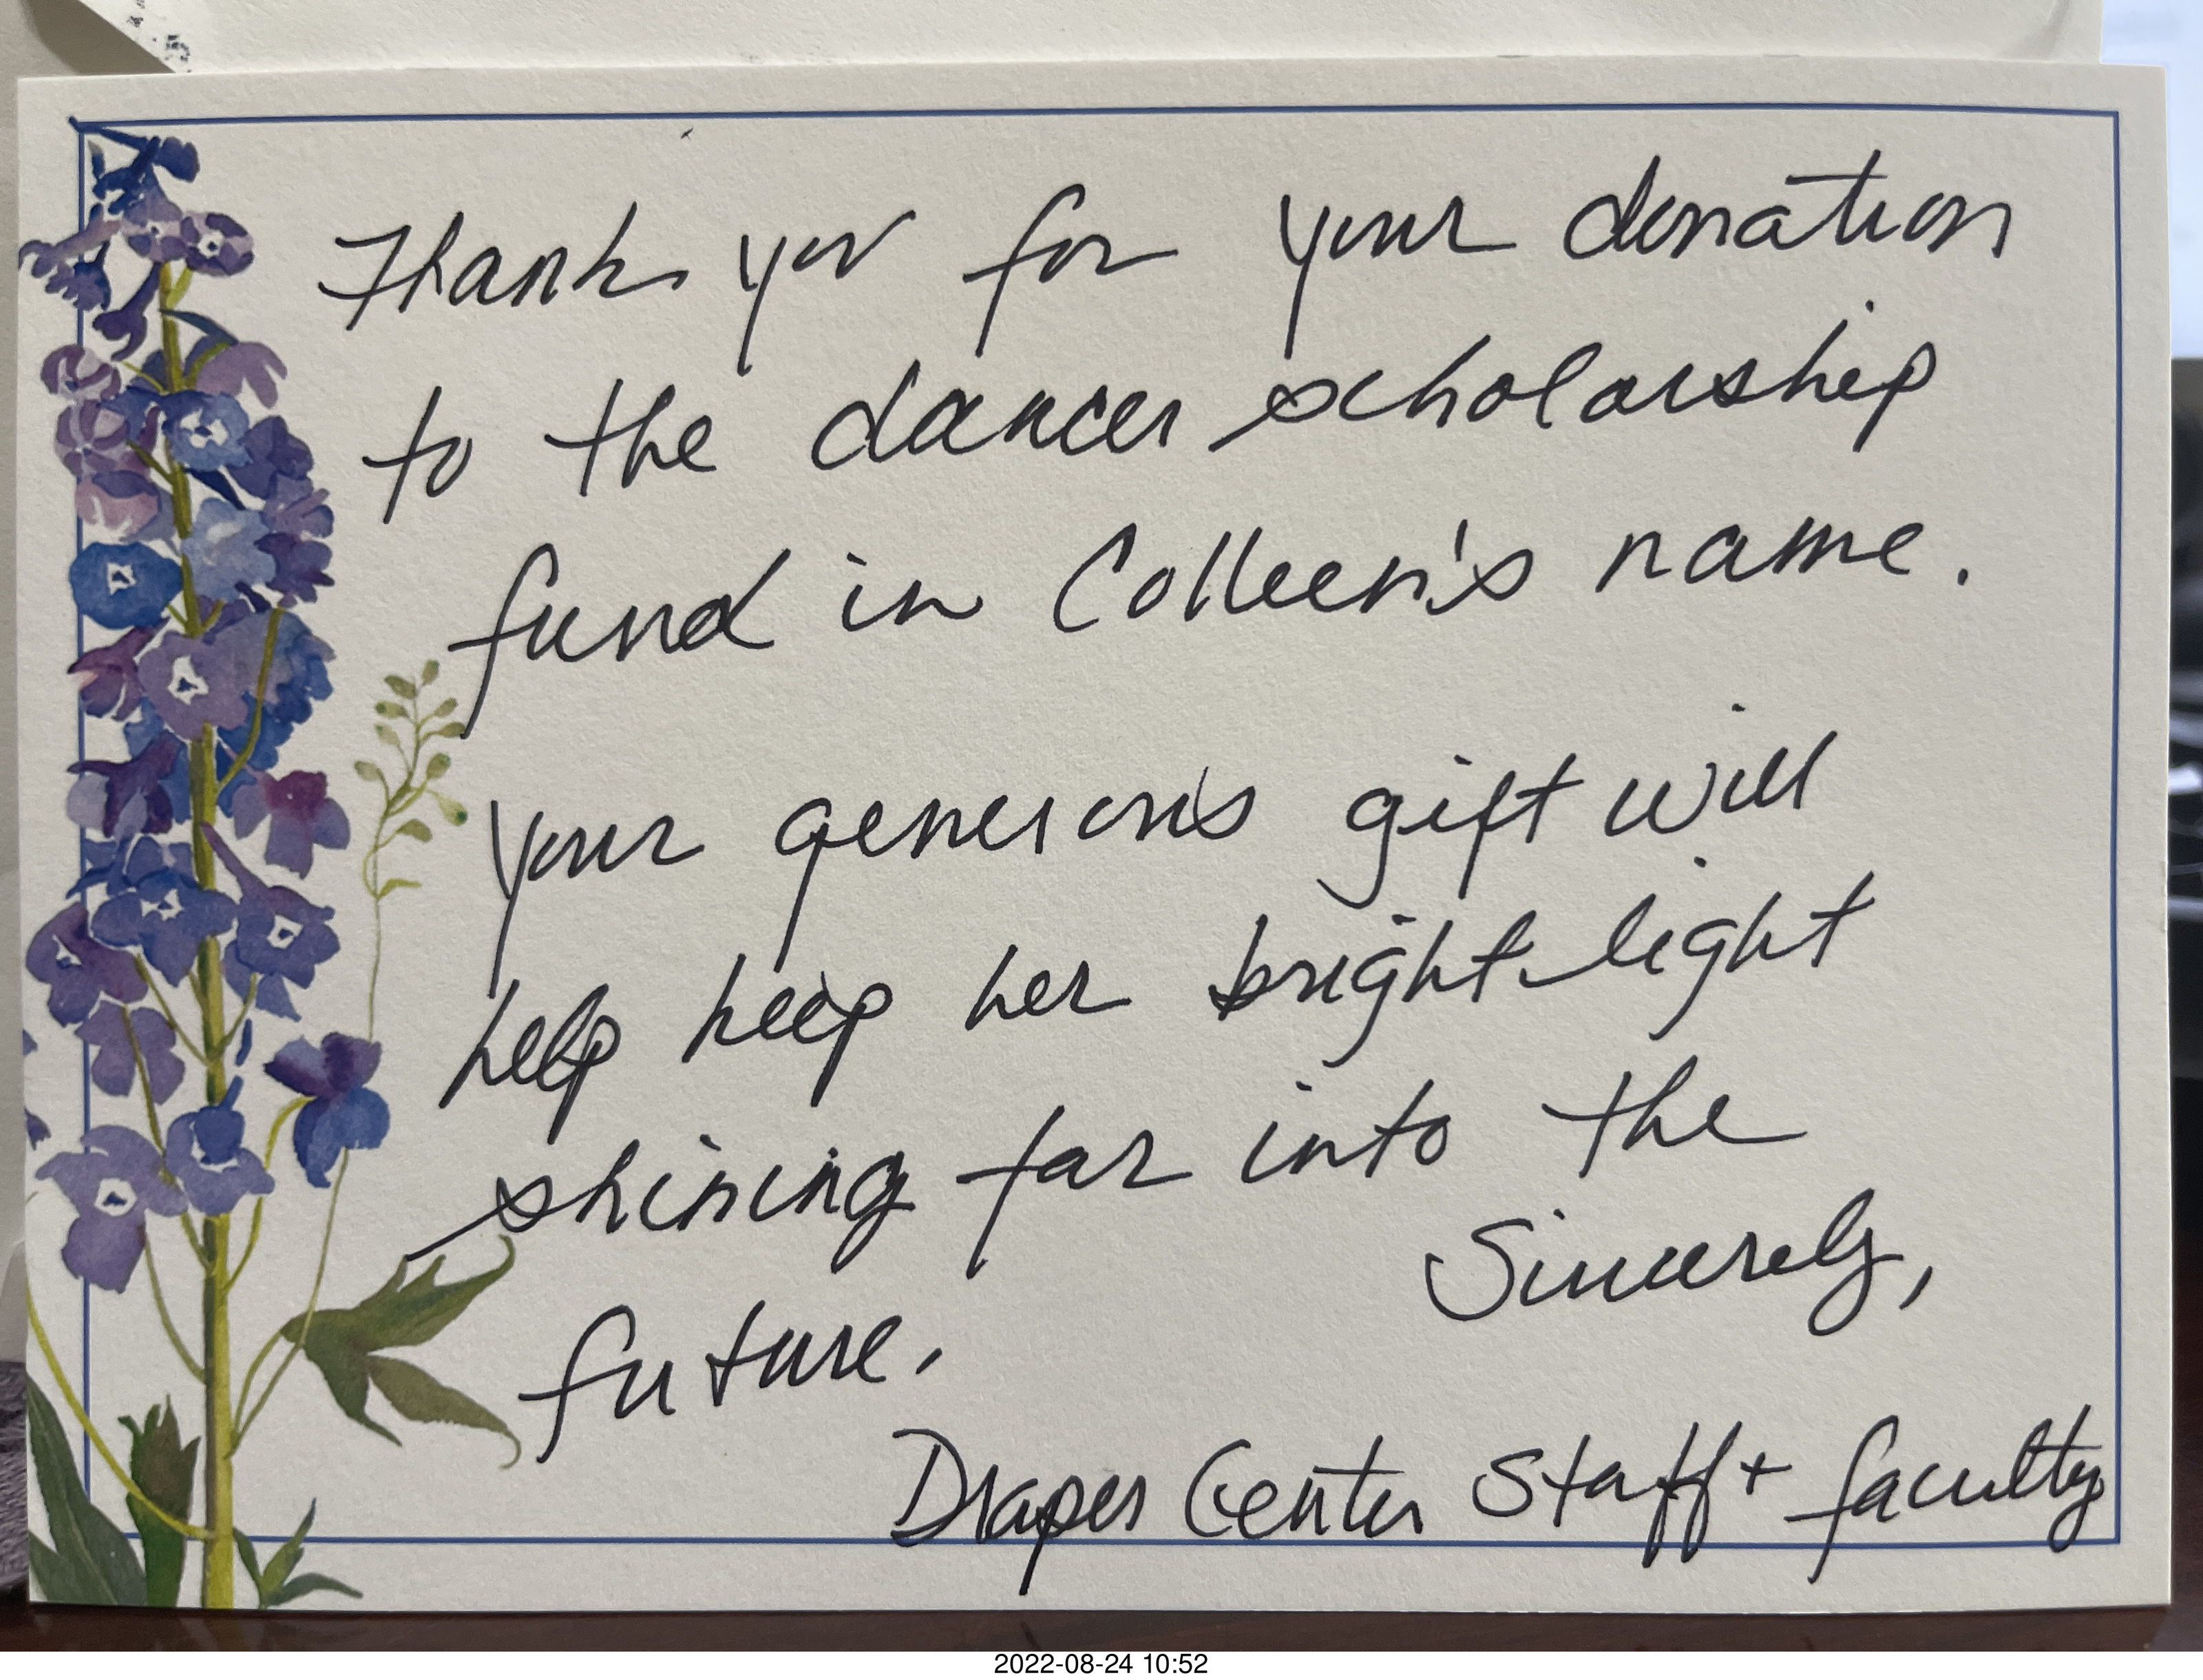 Thank you for your donation
to the dancer scholarship
fund in Colleen's name.
Your generous gift will
help keep her bright light
shining far into the
future.
Sincerely,
Draper Center Staff + faculty
2022-08-24 10:52